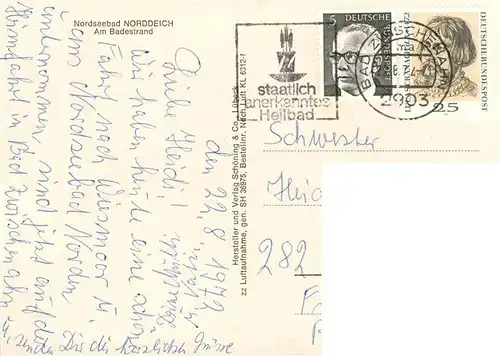 Nordseebad NORDDEICH
Am Badestrand
den 22. 8. 1972
Liebe Heidi!
Wir haben heute eine schöne
Fahrt nach Wiesmoor u.
ans Nordseebad Norden
unternommen, sind jetzt auf der
Heimfahrt in Bad Zwischenahn
u. senden Dir die herzlichsten Grüsse
Hersteller und Verlag Schöning & Co., Lübeck
zz Luftaufnahme, gen. SH 38975, Bestellnr. Nach Luft KL 6312-f
staatlich
anerkanntes
Heilbad
5
DEUTSCHE
BAD ZWISCHENAHN
2903
DEUTSCHE BUNDESPOST
25
Schwester
Heid
282